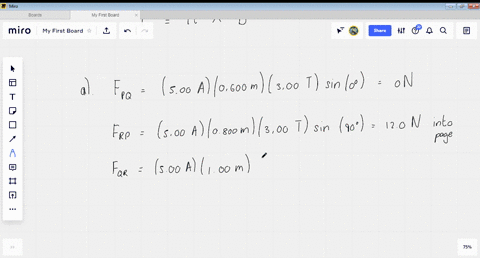 Miro
Boards
My First Board
miro
My First Board
Share
a) F_PQ = (5.00 A)(0.600 m)(3.00 T) sin(0°) = 0N
F_RP = (5.00 A)(0.800 m)(3.00 T) sin (90°) = 12.0 N into page
F_QR = (5.00 A)(1.00 m)
75%